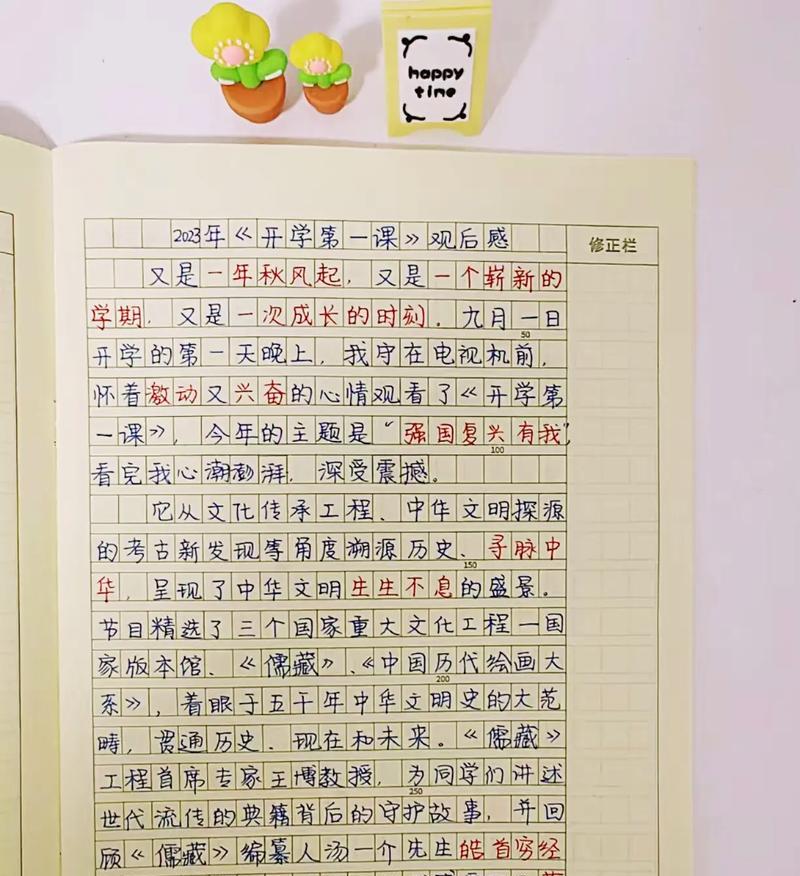 happy
time
2023年《开学第一课》观后感
修正栏
又是一年秋风起，又是一个崭新的
学期，又是一次成长的时刻。九月一日
50
开学的第一天晚上，我守在电视机前，
怀着激动又兴奋的心情观看了《开学第
一课》，今年的主题是“强国复兴有我”，
100
看完我心潮澎湃，深受震撼。
它从文化传承工程、中华文明探源
的考古新发现等角度溯源历史、寻脉中
150
华，呈现了中华文明生生不息的盛景。
节目精选了三个国家重大文化工程一国
家版本馆、《儒藏》、《中国历代绘画大
200
系》，着眼于五千年中华文明史的大范
畴，贯通历史、现在和未来。《儒藏》
工程首席专家王博教授，为同学们讲述
250
世代流传的典籍背后的守护故事，并回
顾《儒藏》编纂人汤一介先生皓首穷经